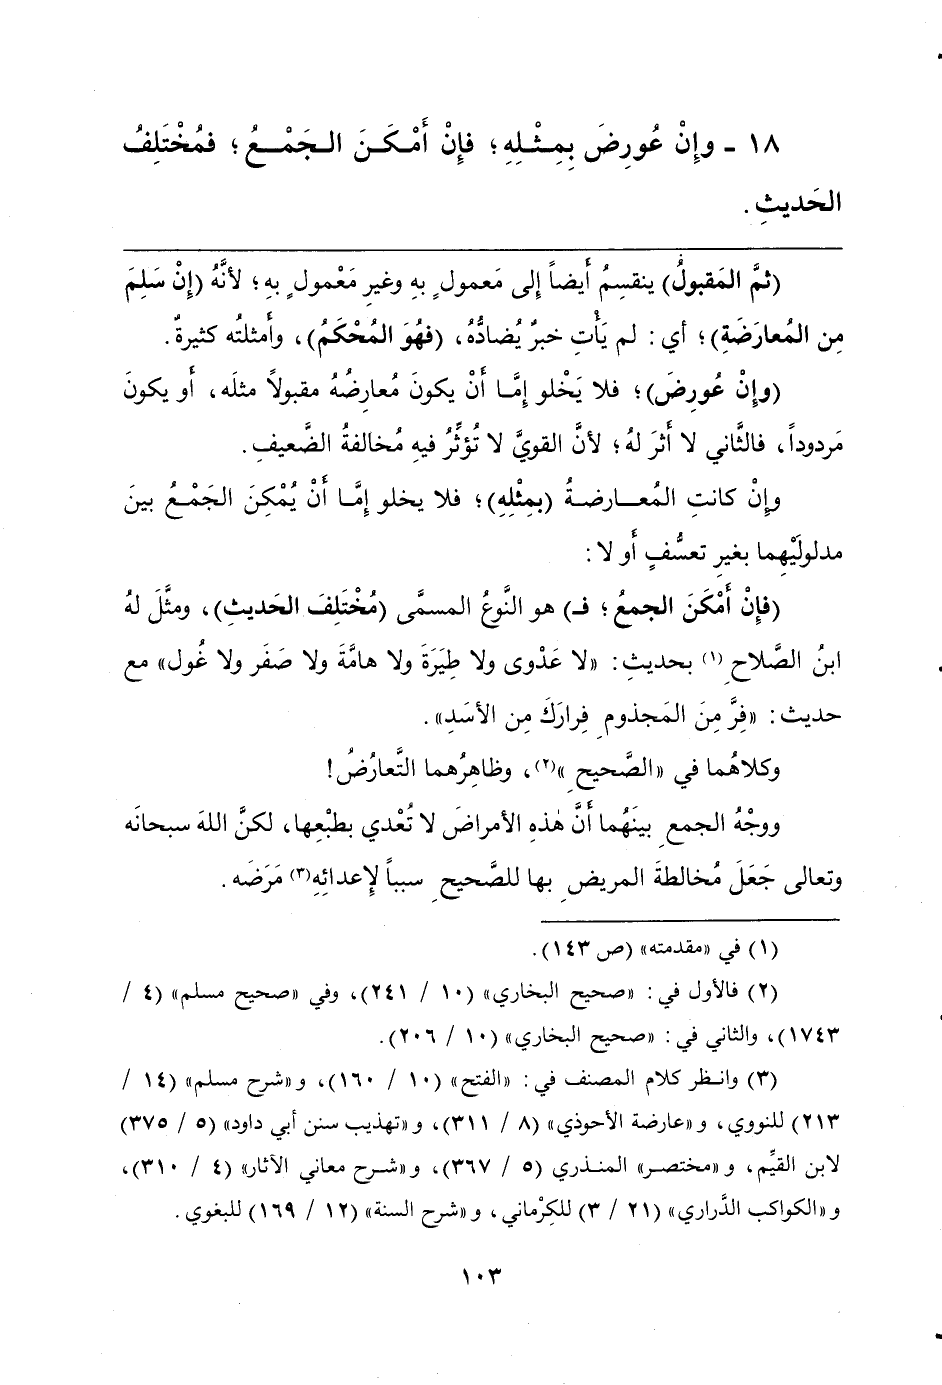 ١٨ - وإِنْ عُورِضَ بِمِثْلِهِ؛ فإِنْ أَمْكَنَ الجَمْعُ؛ فمُخْتَلِفُ
الحَديثِ.
(ثمَّ المَقبولُ) ينقسِمُ أَيضاً إِلى مَعمولٍ بهِ وغيرِ مَعْمولٍ بهِ؛ لأنَّهُ (إِنْ سَلِمَ
مِن المُعارَضَةِ)؛ أي: لم يَأْتِ خبرٌ يُضادُّهُ، (فهُوَ المُحْكَمُ)، وأَمثلتُه كثيرةٌ.
(وإِنْ عُورِضَ)؛ فلا يَخْلو إِمَّا أَنْ يكونَ مُعارِضُهُ مقبولاً مثلَه، أَو يكونَ
مَردوداً، فالثَّاني لا أَثرَ لهُ؛ لأنَّ القويَّ لا تُؤثِّرُ فيهِ مُخالفةُ الضَّعيفِ.
وإِنْ كانتِ المُعارضةُ (بمِثْلِهِ)؛ فلا يخلو إِمَّا أَنْ يُمْكِنَ الجَمْعُ بينَ
مدلولَيْهِما بغيرِ تعسُّفٍ أَو لا:
(فإِنْ أَمْكَنَ الجمعُ؛ فـ) هو النَّوعُ المسمَّى (مُخْتَلِفَ الحَديثِ)، ومثَّلَ لهُ
ابنُ الصَّلاحِ (١) بحديثِ: «لا عَدْوى ولا طِيَرَةَ ولا هامَّةَ ولا صَفَر ولا غُول» مع
حديث: «فِرَّ مِنَ المَجذومِ فِرارَكَ مِن الأسَدِ».
وكلاهُما في «الصَّحيحِ»(٢)، وظاهِرُهما التَّعارُضُ!
ووجْهُ الجمعِ بينَهُما أَنَّ هٰذهِ الأمراضَ لا تُعْدي بطبْعِها، لكنَّ اللهَ سبحانَه
وتعالى جَعَلَ مُخالطةَ المريضِ بها للصَّحيحِ سبباً لإعدائِهِ(٣) مَرَضَه.
(١) في «مقدمته» (ص ١٤٣).
(٢) فالأول في: «صحيح البخاري» (١٠ / ٢٤١)، وفي «صحيح مسلم» (٤ /
١٧٤٣)، والثاني في: «صحيح البخاري» (١٠ / ٢٠٦).
(٣) وانظر كلام المصنف في: «الفتح» (١٠ / ١٦٠)، و «شرح مسلم» (١٤ /
٢١٣) للنووي، و «عارضة الأحوذي» (٨ / ٣١١)، و «تهذيب سنن أبي داود» (٥ / ٣٧٥)
لابن القيِّم، و «مختصر» المنذري (٥ / ٣٦٧)، و «شرح معاني الآثار» (٤ / ٣١٠)،
و «الكواكب الدَّراري» (٢١ / ٣) للكِرْماني، و «شرح السنة» (١٢ / ١٦٩) للبغوي.
١٠٣